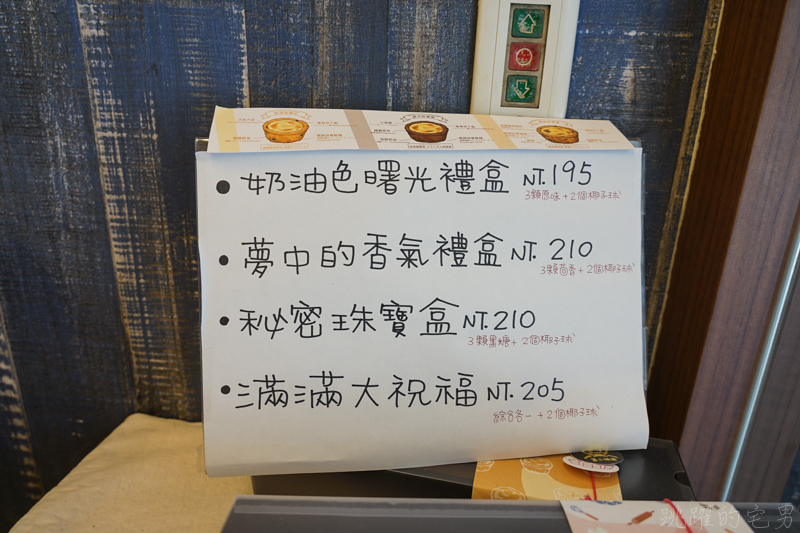 • 奶油色曙光禮盒 NT.195
3顆原味+2個椰子球
• 夢中的香氣禮盒 NT. 210
3顆茴香+2個椰子球
• 秘密珠寶盒 NT.210
3顆黑糖+2個椰子球
• 滿滿大祝福 NT. 205
綜合各一+2個椰子球
跳躍的宅男